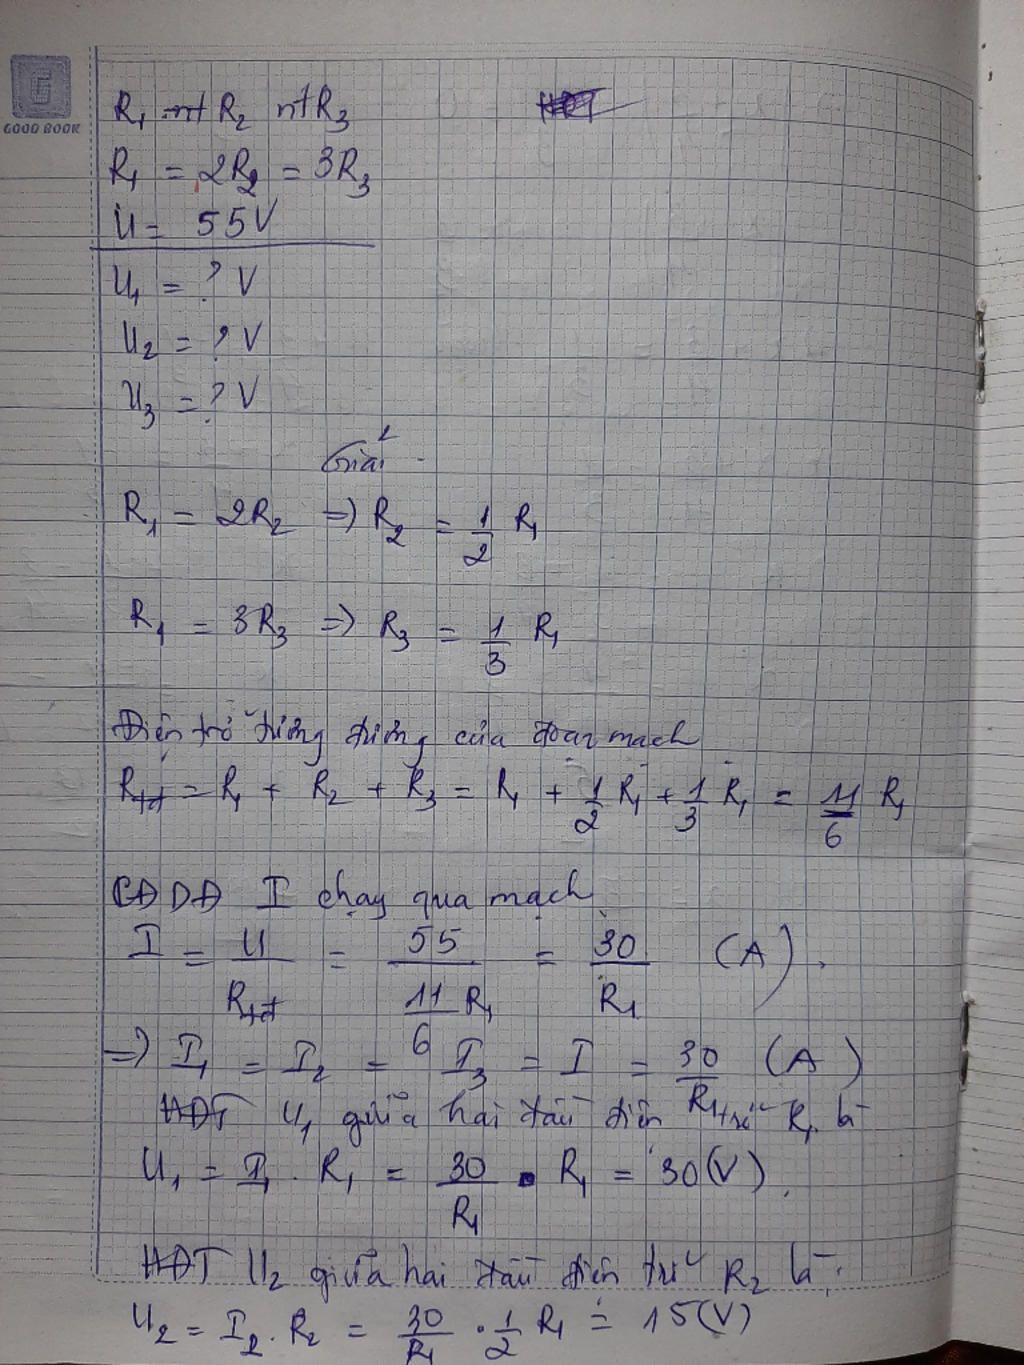 G
GOOD BOOK
R₁ nt R₂ nt R₃
HĐT
R₁ = 2R₂ = 3R₃
U = 55V
U₁ = ? V
U₂ = ? V
U₃ = ? V
Giải
R₁ = 2R₂ => R₂ = 1/2 R₁
R₁ = 3R₃ => R₃ = 1/3 R₁
Điện trở tương đương của đoạn mạch
Rtđ = R₁ + R₂ + R₃ = R₁ + 1/2 R₁ + 1/3 R₁ = 11/6 R₁
CĐDĐ I chạy qua mạch
I = U/Rtđ = 55/(11/6 R₁) = 30/R₁ (A).
=> I₁ = I₂ = I₃ = I = 30/R₁ (A)
HĐT U₁ giữa hai đầu điện trở R₁ là
U₁ = I₁ . R₁ = 30/R₁ . R₁ = 30(V).
HĐT U₂ giữa hai đầu điện trở R₂ là.
U₂ = I₂ . R₂ = 30/R₁ . 1/2 R₁ = 15(V)